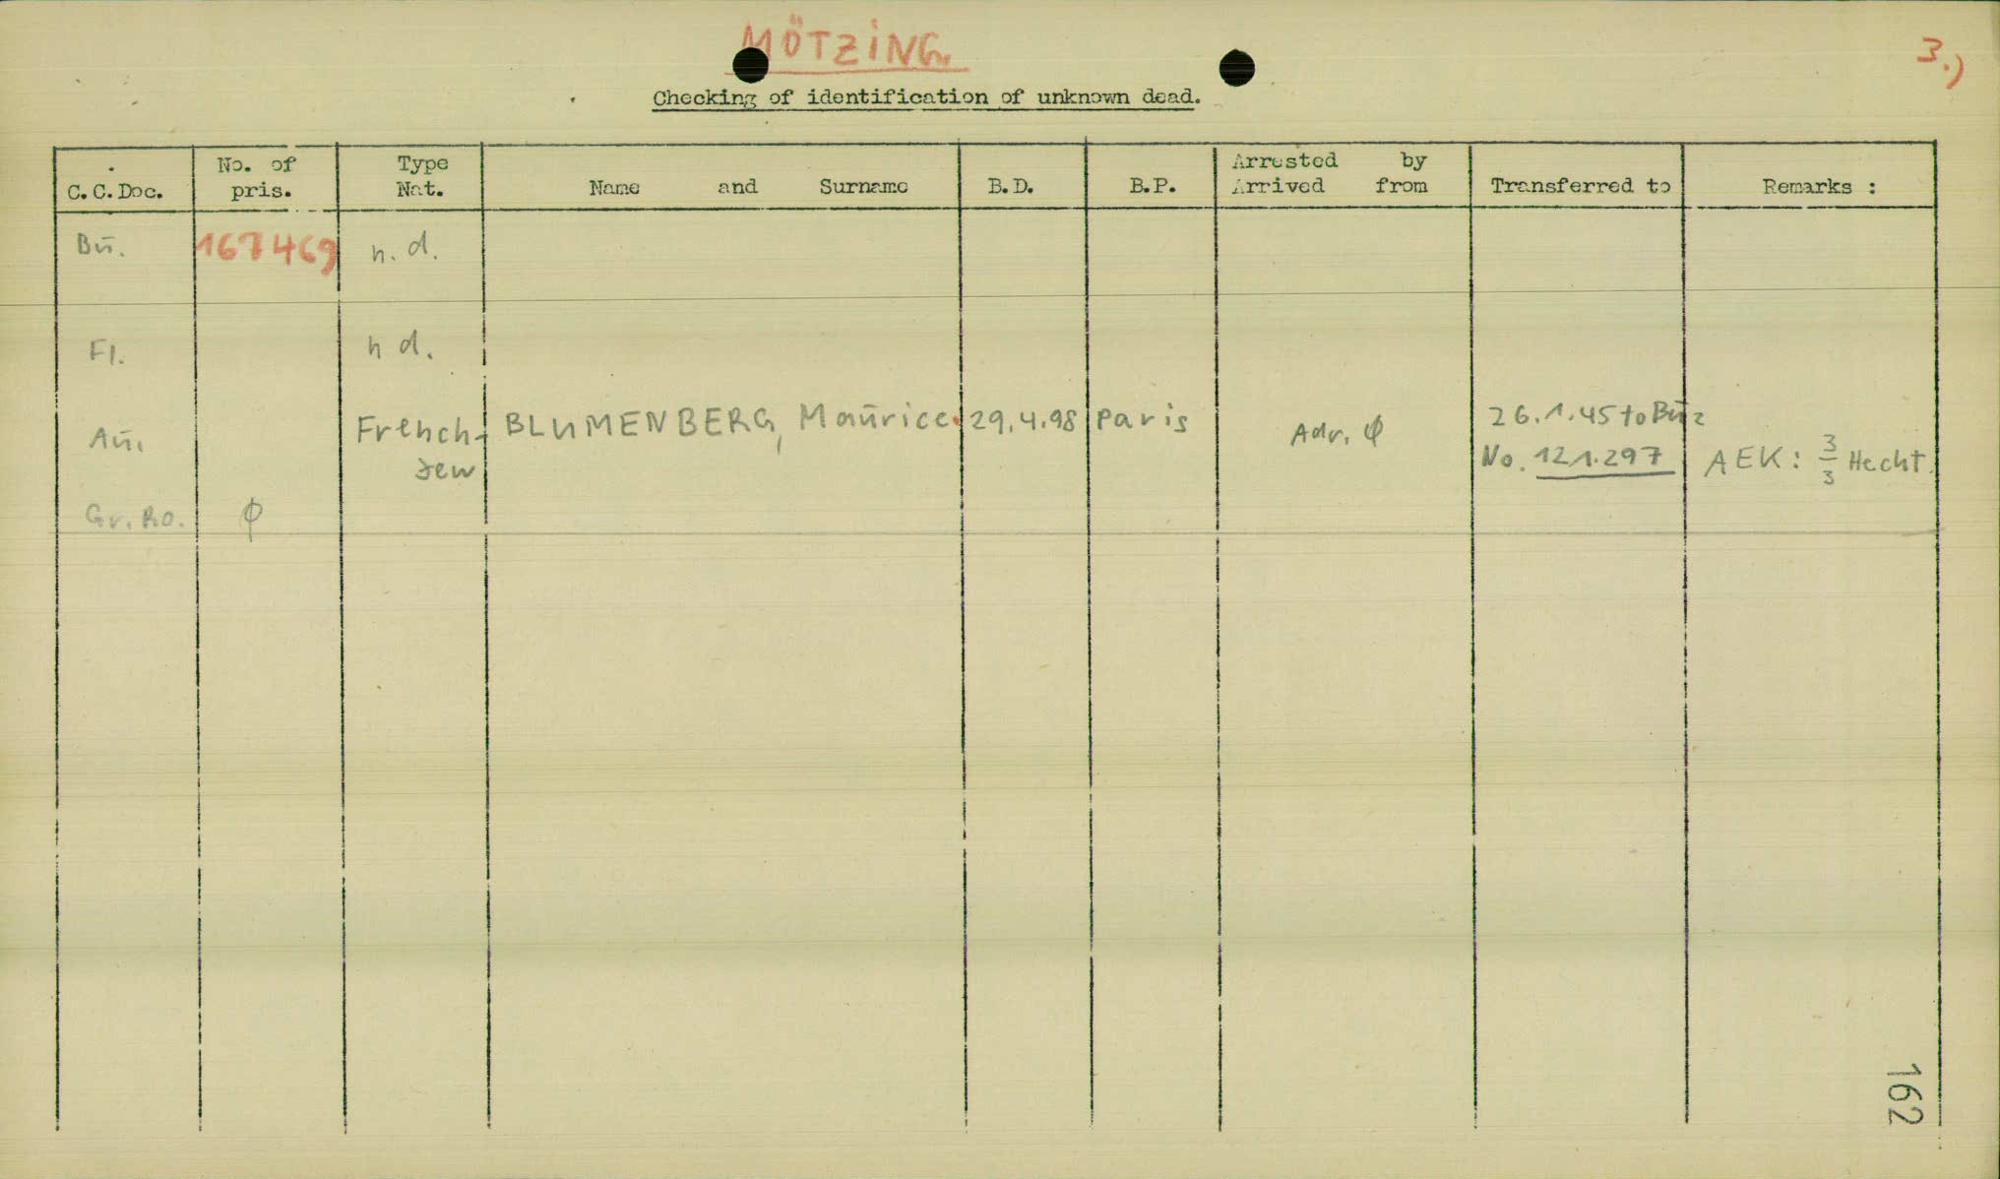 MÖTZING.
3.)
Checking of identification of unknown dead.
C.C.Doc. No. of pris. Type Nat. Name and Surname B.D. B.P. Arrested by Arrived from Transferred to Remarks :
Bū. 167469 n. d.
Fl. n d.
Aū. French-Jew BLUMENBERG, Maūrice 29.4.98 Paris Adr. ϕ 26.1.45 to Būz
No. 121.297 AEK: 3/3 Hecht.
Gr. Ro. ϕ
162